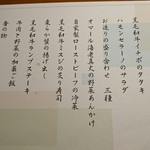 黒毛和牛イチボのタタキ
ハモンセラーノのサラダ
お造りの盛り合わせ 三種
オマール海老真丈の野菜あんかけ
自家製ローストビーフの冷菜
黒毛和牛ミスジの炙り寿司
柔らか蟹の揚げ出し
黒毛和牛ランプステーキ
牛肉と野菜の釉薬ご飯
香の物